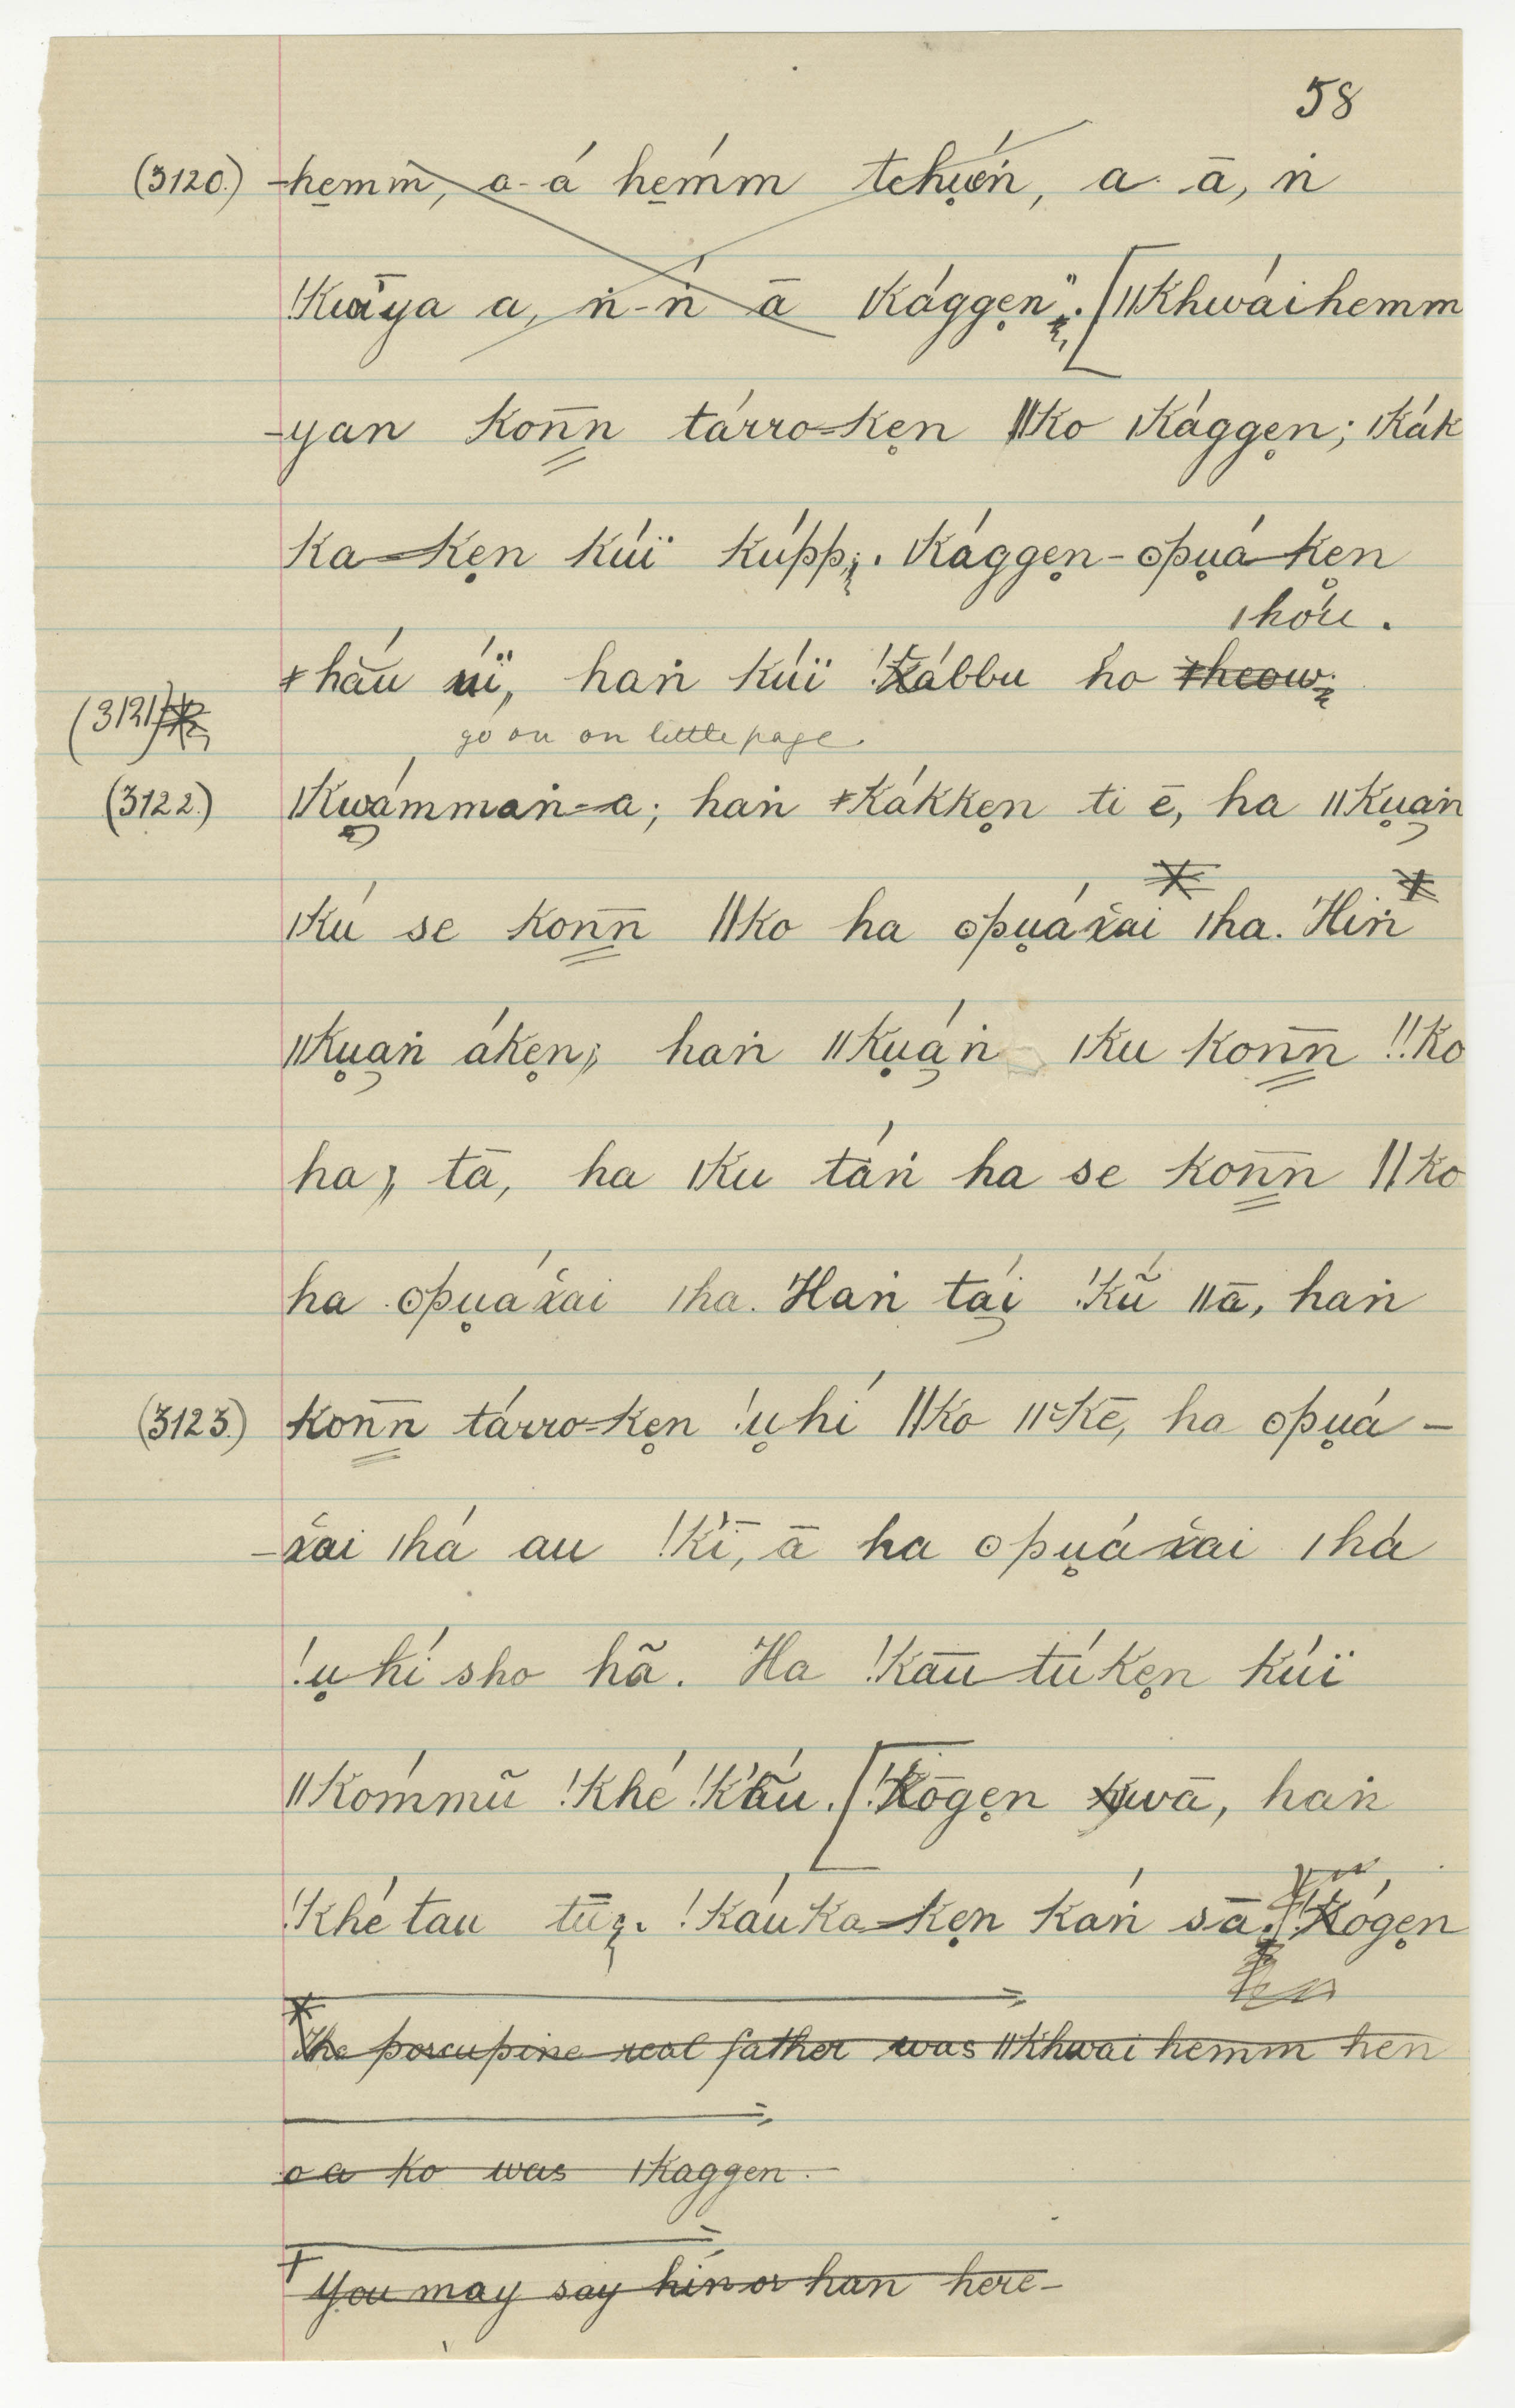 58
(3120.) -hemm̄, a-á hémm tchu̥óń, a-ā, ṅ
!Kwā́ya a, ṅ-ṅ́ ā ǀKággen̥". [ǁKhwáihemm
-yan konn̄ tárro-ken̥ ǁko ǀKággen̥; ǀKák
ka-ken̥ kúï kúpp; . ǀKággen̥-ʘpu̥á-ken̥
ǀhóu̥ .
ǂhā́u úï, haṅ kúï !kábbu ho ǂheow;
(3121)
go on on little page.
(3122.) ǀKwámmaṅ-a; haṅ ǂkákken̥ ti ē, ha ǁku̥aṅ
ǀkú se konn̄ ǁko ha ʘpu̥áẋai ǀha. Hiṅ
ǁku̥aṅ áken̥; haṅ ǁku̥áṅ ǀku konn̄ !!ko
ha; tā, ha ǀku táṅ ha se konn̄ ǁko
ha ʘpu̥áẋai ǀha. Haṅ tái !kū̃́ ǁā, haṅ
(3123.) konn̄ tárro-ken̥ !u̥hí ǁko ǁkē, ha ʘpu̥á-
-ẋai ǀhá au !kī́, ā ha ʘpu̥áẋai ǀhá
!u̥hí sho hã. Ha !kāu-túken̥ kúï
ǁkómmũ !khé !kā́u. [!Kōgen̥ kwā, haṅ
!khé tau tū; . !káuka-ken̥ káṅ sā. !Kógen̥
The porcupine real father was ǁKhwai hemm hen
o a ko was ǀKaggen.
You may say hiṅ or han here-